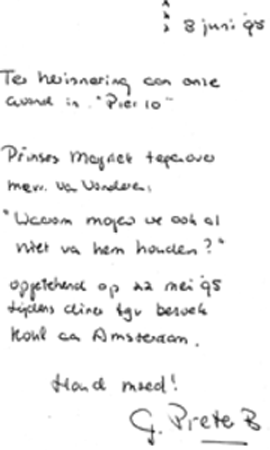 8 juni '95
Ter herinnering aan onze
avond in "Pier 10"
Prinses Magriet tegenover
mevr. van Vonderen:
"Waarom mogen we ook al
niet van hem houden?"
opgetekend op 22 mei '95
tijdens diner tgv bezoek
Kohl aan Amsterdam.
Houd moed!
G. Preter B.